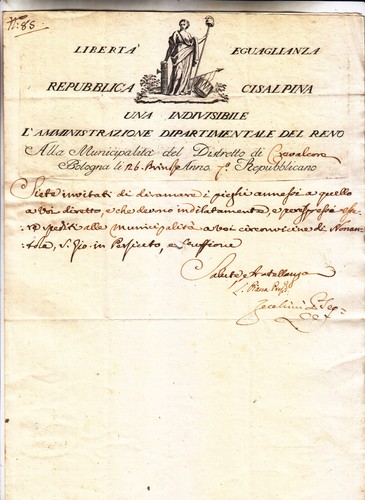 N.° 85.
LIBERTA' EGUAGLIANZA
REPUBBLICA CISALPINA
UNA INDIVISIBILE
L'AMMINISTRAZIONE DIPARTIMENTALE DEL RENO
Alla Municipalità del Distretto di Crevalcore
Bologna li 26. Anno 7.° Repubblicano
Siete invitati di diramare i pieghi annessi a quello
a voi diretto, e che devono indilatamente, e per espresso
spediti alle Municipalità a voi circonvicine di Nonan=
tola, S. Gio: in Persiceto, e Stuffione
Salute, e Fratellanza